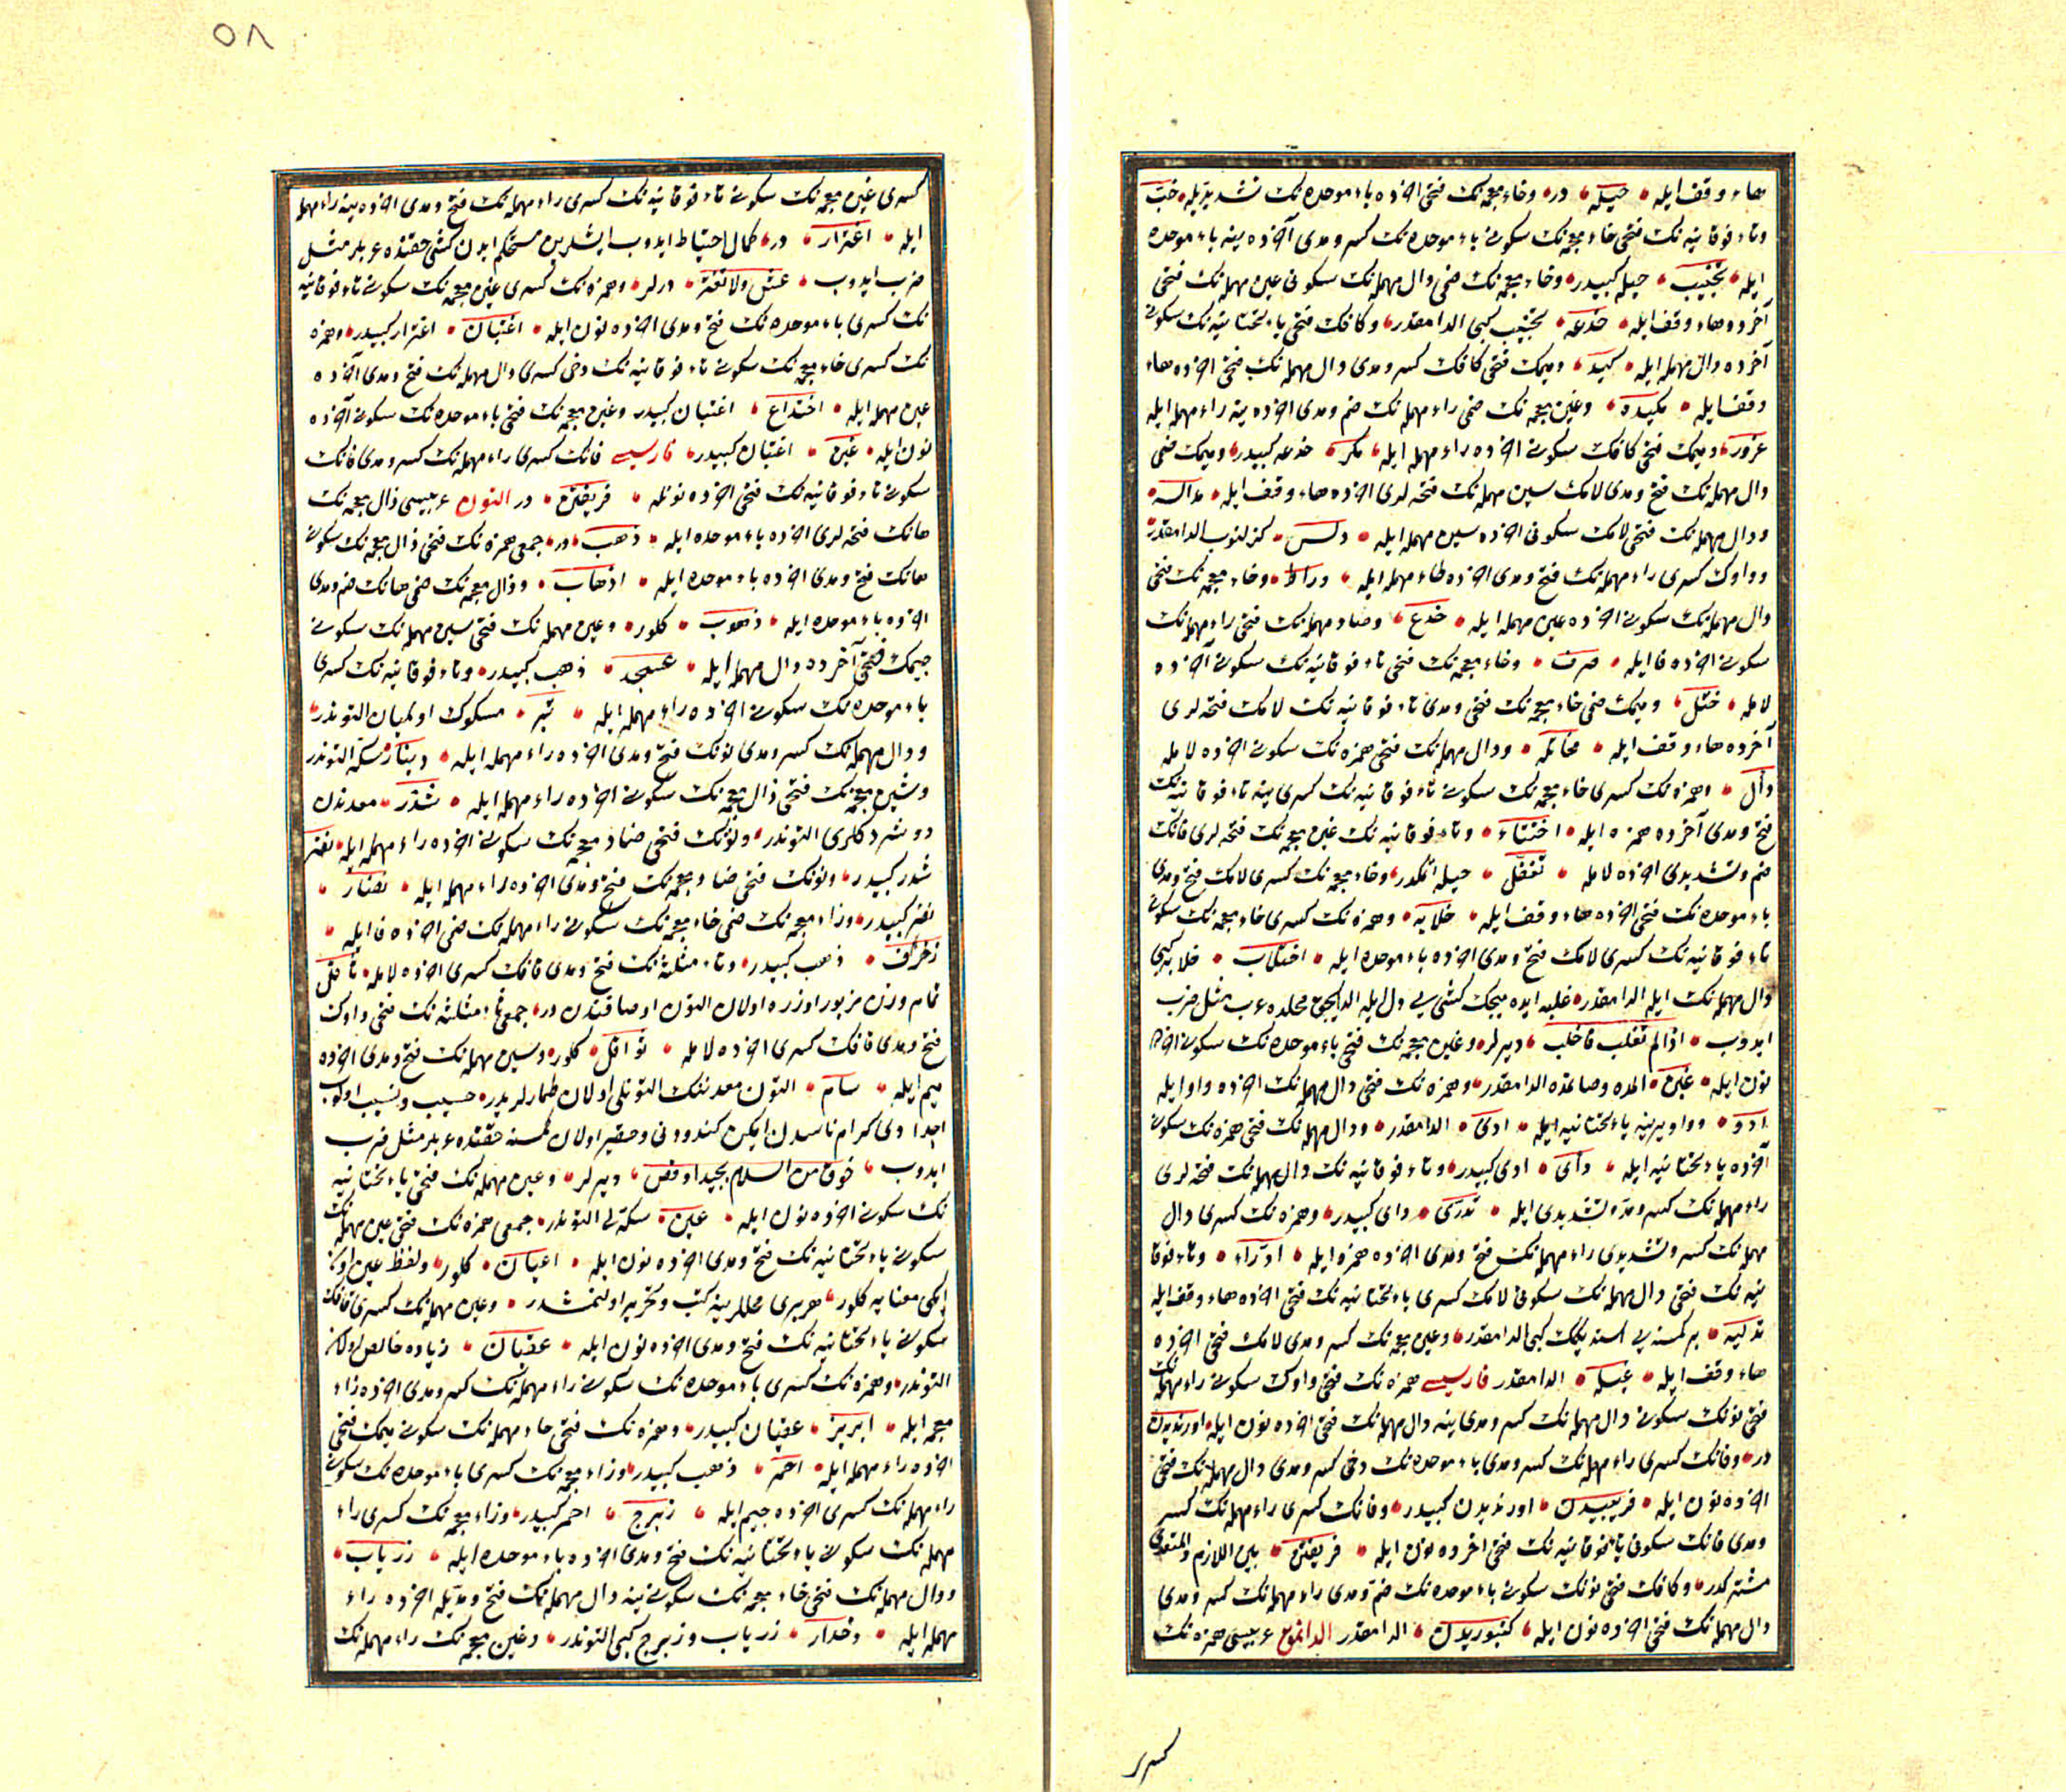 هاء وقف ايله حيله در وخاء معجمه نك فتحى اخرده باء موحده نك تشديديله خبّ
وتاء فوقانيه نك فتحى خاء معجمه نك سكونى باء موحده نك كسر ومدى آخرده ينه باء موحده
ايله تخبيب حيله كبيدر وخاء معجمه نك ضمى دال مهمله نك سكونى عين مهمله نك فتحى
آخرده هاء وقف ايله خدعه تخبيب كبى الدامقدر وكافك فتحى ياء تحتانيه نك سكونى
آخرده دال مهمله ايله كيد وميمك فتحى كافك كسر ومدى دال مهمله نك فتحى اخرده هاء
وقف ايله مكيده وغين معجمه نك ضمى راء مهمله نك ضم ومدى اخرده ينه راء مهمله ايله
غرور وميمك فتحى كافك سكونى اخرده راء مهمله ايله مكر خدعه كبيدر وميمك ضمى
دال مهمله نك فتح ومدى لامك سين مهمله نك فتحه لرى اخرده هاء وقف ايله مدالسه
ودال مهمله نك فتحى لامك سكونى اخرده سين مهمله ايله دلس كزلنوب الدامقدر
وواوك كسرى راء مهمله نك فتح ومدى اخرده طاء مهمله ايله وراط وخاء معجمه نك فتحى
دال مهمله نك سكونى اخرده عين مهمله ايله خدع وصاد مهمله نك فتحى راء مهمله نك
سكونى اخرده فا ايله صرف وخاء معجمه نك فتحى تاء فوقانيه نك سكونى آخرده
لامله ختل وميمك ضمى خاء معجمه نك فتحى ومدى تاء فوقانيه نك لامك فتحه لرى
آخرده هاء وقف ايله مخاتله ودال مهمله نك فتحى همزه نك سكونى اخرده لامله
دأل وهمزه نك كسرى خاء معجمه نك سكونى تاء فوقانيه نك كسرى ينه تاء فوقانيه نك
فتح ومدى آخرده همزه ايله اختتاء وتاء فوقانيه نك غين معجمه نك فتحه لرى فانك
ضم وتشديدى اخرده لامله تغفّل حيله اتمكدر وخاء معجمه نك كسرى لامك فتح ومدى
باء موحده نك فتحى اخرده هاء وقف ايله خلابه وهمزه نك كسرى خاء معجمه نك سكونى
تاء فوقانيه نك كسرى لامك فتح ومدى اخرده باء موحده ايله اختلاب خلابه كبى
دال مهمله نك ايله الدامقدر غلبه ايده ميجك كشى يى دل ايله الدايجق محلده عرب مثل ضرب
ايدوب اذا لم تغلب فاخلب ديرلر وغين معجمه نك فتحى باء موحده نك سكونى اخرده
نون ايله غبن المده وصاتمده الدامقدر وهمزه نك فتحى دال مهمله نك اخرده واو ايله
ادو وواو يرينه ياء تحتانيه ايله ادى الدامقدر ودال مهمله نك فتحى همزه نك سكونى
آخرده ياء تحتانيه ايله دأى ادى كبيدر وتاء فوقانيه نك دال مهمله نك فتحه لرى
راء مهمله نك كسر ومد وتشديدى ايله تدرّى دأى كبيدر وهمزه نك كسرى دال
مهمله نك كسر وتشديدى راء مهمله نك فتح ومدى اخرده همزه ايله ادّراء وتاء فوقا
نيه نك فتحى دال مهمله نك سكونى لامك كسرى ياء تحتانيه نك فتحى اخرده هاء وقف ايله
تدليه بر كمسنه يى كبى الدامقدر وغين معجمه نك كسر ومدى لامك فتحى اخرده
هاء وقف ايله غيله الدامقدر فارسيسى همزه نك فتحى واوك سكونى راء مهمله نك
فتحى نونك سكونى دال مهمله نك كسر ومدى ينه دال مهمله نك فتحى اخرده نون ايله اورنديدن
در وفانك كسرى راء مهمله نك كسر ومدى باء موحده نك دخى كسر ومدى دال مهمله نك فتحى
اخرده نون ايله فريبيدن اورنديدن كبيدر وفانك كسرى راء مهمله نك كسر
ومدى فانك سكونى تاء فوقانيه نك فتحى اخرده نون ايله فريفتن بين اللازم والمتعدى
مشتركدر وكافك فتحى نونك سكونى باء موحده نك ضم ومدى راء مهمله نك كسر ومدى
دال مهمله نك فتحى اخرده نون ايله كنبوريدن الدامقدر الدانمق عربيسى همزه نك
كسرى
٥٨
كسرى غين معجمه نك سكونى تاء فوقانيه نك كسرى راء مهمله نك فتح ومدى اخرده ينه راء مهمله
ايله اغترار در كمال احتياط ايدوب ايشلرين مستحكم ايدن كشى حقنده عربلر مثل
ضرب ايدوب عش ولا تغتر ديرلر وهمزه نك كسرى غين معجمه نك سكونى تاء فوقانيه
نك كسرى باء موحده نك فتح ومدى اخرده نون ايله اغتبان اغترار كبيدر وهمزه
نك كسرى خاء معجمه نك سكونى تاء فوقانيه نك دخى كسرى دال مهمله نك فتح ومدى آخرده
عين مهمله ايله اختداع اغتبان كبيدر وغين معجمه نك فتحى باء موحده نك سكونى آخرده
نون ايله غبن اغتبان كبيدر فارسيسى فانك كسرى راء مهمله نك كسر ومدى فانك
سكونى تاء فوقانيه نك فتحى اخرده نونله فريفتن در التون عربيسى ذال معجمه نك
هانك فتحه لرى اخرده باء موحده ايله ذهب در جمعى همزه نك فتحى ذال معجمه نك سكونى
هانك فتح ومدى اخرده باء موحده ايله اذهاب وذال معجمه نك ضمى هانك ضم ومدى
اخرده باء موحده ايله ذهوب كلور وعين مهمله نك فتحى سين مهمله نك سكونى
جيمك فتحى آخرده دال مهمله ايله عسجد ذهب كبيدر وتاء فوقانيه نك كسرى
باء موحده نك سكونى اخرده راء مهمله ايله تبر مسكوك اولميان التوندر
ودال مهمله نك كسر ومدى نونك فتح ومدى اخرده راء مهمله ايله دينار سكه لى التوندر
وشين معجمه نك فتحى ذال معجمه نك سكونى اخرده راء مهمله ايله شذر معدندن
دوشردكلرى التوندر ونونك فتحى ضاد معجمه نك سكونى اخرده راء مهمله ايله نضر
شذر كبيدر ونونك فتحى ضاد معجمه نك فتح ومدى اخرده راء مهمله ايله نضار
نضر كبيدر وزاء معجمه نك ضمى خاء معجمه نك سكونى راء مهمله نك ضمى اخرده فا ايله
زخرف ذهب كبيدر وثاء مثلثه نك فتح ومدى قافك كسرى اخرده لامله ثاقل
تمام وزن مزبور اوزره اولان التون اوصافندن در جمعى ثاء مثلثه نك فتحى واوك
فتح ومدى قافك كسرى اخرده لامله ثواقل كلور وسين مهمله نك فتح ومدى اخرده
ميم ايله سام التون معدننك التونلى اولان طمارلريدر حسيب ونسيب اولوب
اجدادى كرام ناسدن ايكن كندو دنى وحقير اولان كمسنه حقنده عربلر مثل ضرب
ايدوب ديرلر وعين مهمله نك فتحى ياء تحتانيه
نك سكونى اخرده نون ايله عين سكه لى التوندر جمعى همزه نك فتحى عين مهمله نك
سكونى ياء تحتانيه نك فتح ومدى اخرده نون ايله اعيان كلور ولفظ عين اون
ايكى معنايه كلور هر برى محللرينه كتب وتحرير اولنمشدر وعين مهمله نك كسرى قافك
سكونى ياء تحتانيه نك فتح ومدى اخرده نون ايله عقيان زياده خالص اولان
التوندر وهمزه نك كسرى باء موحده نك سكونى راء مهمله نك كسر ومدى اخرده زاء
معجمه ايله ابريز عقيان كبيدر وهمزه نك فتحى حاء مهمله نك سكونى ميمك فتحى
اخرده راء مهمله ايله احمر ذهب كبيدر وزاء معجمه نك كسرى باء موحده نك سكونى
راء مهمله نك كسرى اخرده جيم ايله زبرج احمر كبيدر وزاء معجمه نك كسرى راء
مهمله نك سكونى ياء تحتانيه نك فتح ومدى اخرده باء موحده ايله زرياب
ودال مهمله نك فتحى خاء معجمه نك سكونى ينه دال مهمله نك فتح ومديله اخرده راء
مهمله ايله دخدار زرياب وزبرج كبى التوندر وغين معجمه نك راء مهمله نك